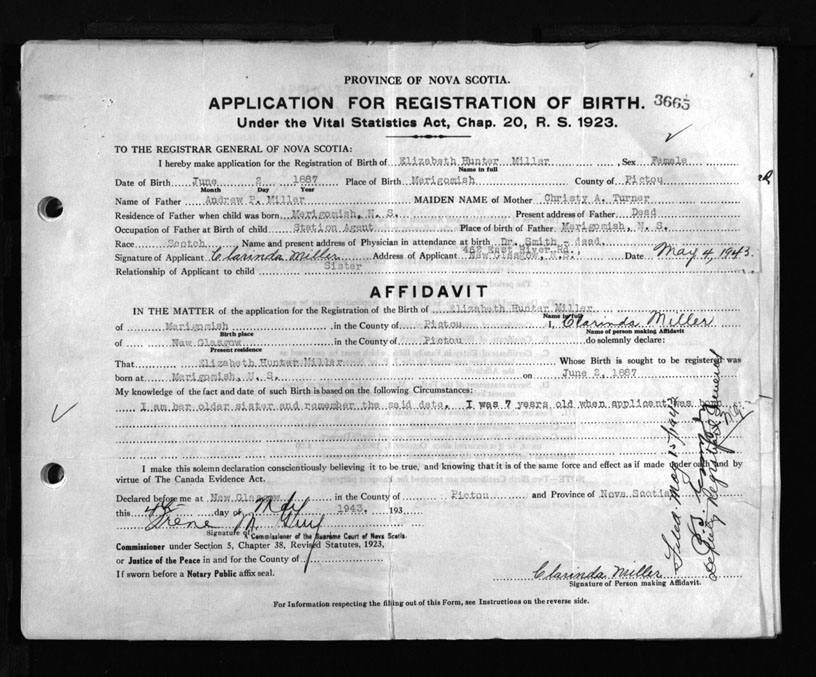 PROVINCE OF NOVA SCOTIA.
APPLICATION FOR REGISTRATION OF BIRTH. 3665
Under the Vital Statistics Act, Chap. 20, R. S. 1923.
TO THE REGISTRAR GENERAL OF NOVA SCOTIA:
I hereby make application for the Registration of Birth of Elizabeth Hunter Miller Sex Female
Name in full
Date of Birth June 2 1887 Place of Birth Merigomish County of Pictou
Month Day Year
Name of Father Andrew P. Miller MAIDEN NAME of Mother Christy A. Turner
Residence of Father when child was born Merigomish, N. S. Present address of Father Dead
Occupation of Father at Birth of child Station Agent Place of birth of Father Merigomish, N. S.
Race Scotch Name and present address of Physician in attendance at birth Dr. Smith - dead.
462 East River Rd.,
Signature of Applicant Clarinda Miller Address of Applicant New Glasgow, N.S. Date May 4, 1943.
Relationship of Applicant to child Sister
AFFIDAVIT
IN THE MATTER of the application for the Registration of the Birth of Elizabeth Hunter Miller
Name in full
of Merigomish in the County of Pictou I, Clarinda Miller
Birth place Name of person making Affidavit
of New Glasgow in the County of Pictou do solemnly declare:
Present residence
That Elizabeth Hunter Miller Whose Birth is sought to be registered was
born at Merigomish, N. S. on June 2, 1887
My knowledge of the fact and date of such Birth is based on the following Circumstances:
I am her older sister and remember the said date. I was 7 years old when applicant was born
I make this solemn declaration conscientiously believing it to be true, and knowing that it is of the same force and effect as if made under oath and by
virtue of The Canada Evidence Act.
Declared before me at New Glasgow in the County of Pictou and Province of Nova Scotia
this 4th day of May 1943. 193
Irene M.
Signature of Commissioner of the Supreme Court of Nova Scotia.
Commissioner under Section 5, Chapter 38, Revised Statutes, 1923,
or Justice of the Peace in and for the County of
If sworn before a Notary Public affix seal.
Clarinda Miller
Signature of Person making Affidavit
For Information respecting the filling out of this Form, see Instructions on the reverse side.
Filed May 15/1943
Deputy Registrar General